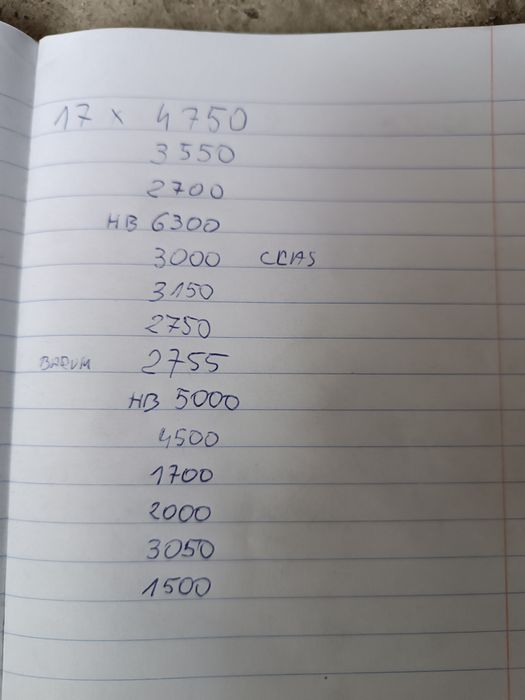 17 x 4750
3550
2700
HB 6300
3000 CLAS
3150
2750
BARUM 2755
HB 5000
4500
1700
2000
3050
1500